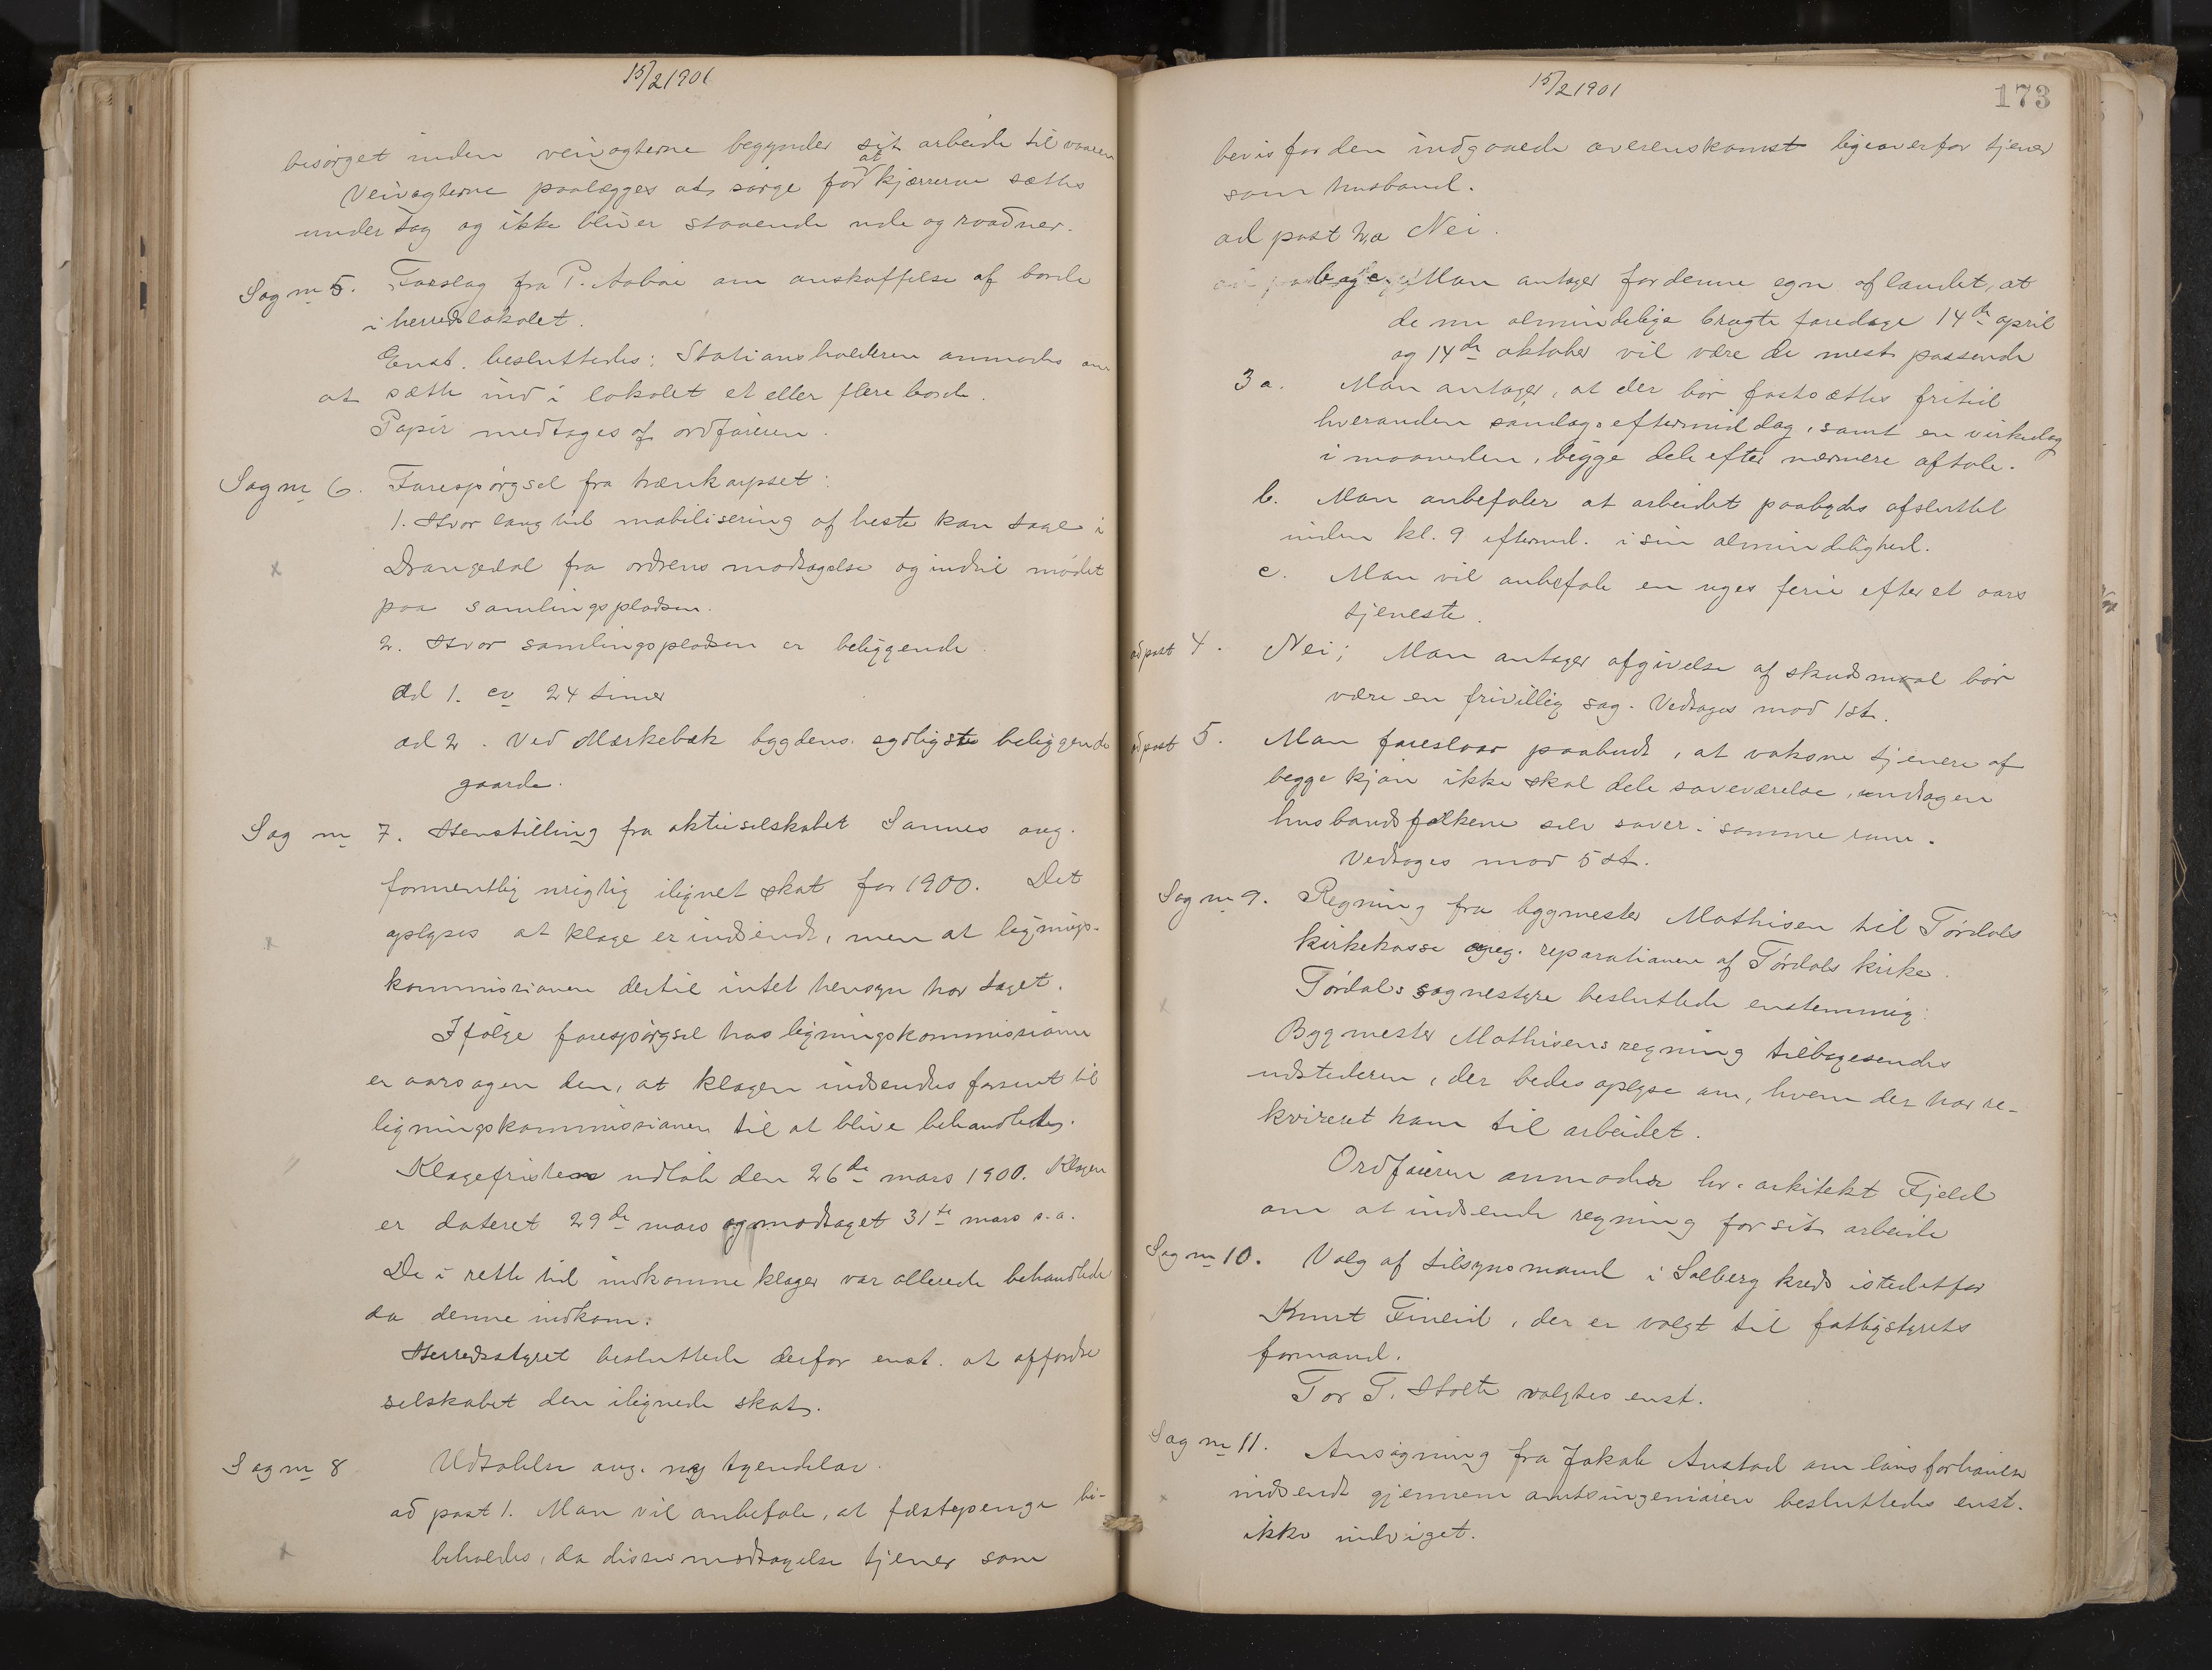 15/2 1901
besørget inden veivogterne begynder sit arbeide til vaaren
Veivogterne paalægges at sørge for at kjærrerne sættes
under tag og ikke bliver staaende ude og raadner.
Sag nr 5. Forslag fra P. Aabøe om anskaffelse af borde
i herredslokalet.
Enst. besluttedes: Stationsholderen anmodes om
at sætte ind i lokalet et eller flere borde.
Papir medtages af ordføreren.
Sag nr 6. Forespørgsel fra trænkorpset:
1. Hvor lang tid mobilisering af heste kan tage i
Drangedal fra ordrens modtagelse og indtil mødet
paa samlingspladsen.
2. Hvor samlingspladsen er beliggende.
ad 1. ca 24 timer
ad 2. Ved Merkebæk bygdens sydligste beliggende
gaarde.
Sag nr 7. Henstilling fra aktieselskabet Sannes ang.
formentlig urigtig ilignet skat for 1900. Det
oplyses at klage er indsendt, men at lignings-
kommissionen dertil intet hensyn har taget.
Ifølge forespørgsel hos ligningskommissionen
er aarsagen den, at klagen indsendtes forsent til
ligningskommissionen til at blive behandlet.
Klagefristen udløb den 26de mars 1900. Klagen
er dateret 29de mars og modtaget 31te mars s.a.
De i rette tid indkomne klager var allerede behandlede
da denne indkom.
Herredsstyret besluttede derfor enst. at affordre
selskabet den ilignede skat.
Sag nr 8 Udtalelse ang. ny tyendelov.
ad post 1. Man vil anbefale, at fæstepenge bi-
beholdes, da disses modtagelse tjener som
15/2 1901
173
bevis for den indgaaede overenskomst ligeoverfor tjener
som husbond.
ad post 2,a Nei.
b og c, Man antager for denne egn af landet, at
de nu almindelige brugte faredage 14de april
og 14de oktober vil være de mest passende
3 a. Man antager, at der bør fastsættes fritid
hveranden søndags eftermiddag, samt en virkedag
i maaneden, begge dele efter nærmere aftale.
b. Man anbefaler at arbeidet paabydes afsluttet
inden kl. 9 eftermd. i sin almindelighed.
c. Man vil anbefale en uges ferie efter et aars
tjeneste.
ad post 4. Nei; Man antager afgivelse af skudsmaal bør
være en frivillig sag. Vedtages mod 1 st.
ad post 5. Man foreslaar paabudt, at voksne tjenere af
begge kjøn ikke skal dele soveværelse, undtagen
husbondsfolkene selv sover i samme rum.
Vedtages mod 5 st.
Sag nr 9. Regning fra bygmester Mathisen til Tørdals
kirkekasse angaa. reparationen af Tørdals kirke.
Tørdals sognestyre besluttede enstemmig:
Bygmester Mathisens regning tilbagesendes
udstederen, der bedes oplyse om, hvem der har re-
kvireret ham til arbeidet.
Ordføreren anmoder hr. arkitekt Fjeld
om at indsende regning for sit arbeide
Sag nr 10. Valg af tilsynsmand i Solberg kreds istedetfor
Knut Fineid, der er valgt til fattigstyrets
formand.
Tor T. Holte valgtes enst.
Sag nr 11. Ansøgning fra Jakob Austad om lønsforhøielse
indsendt gjennem amtsingeniøren besluttedes enst.
ikke indvilget.